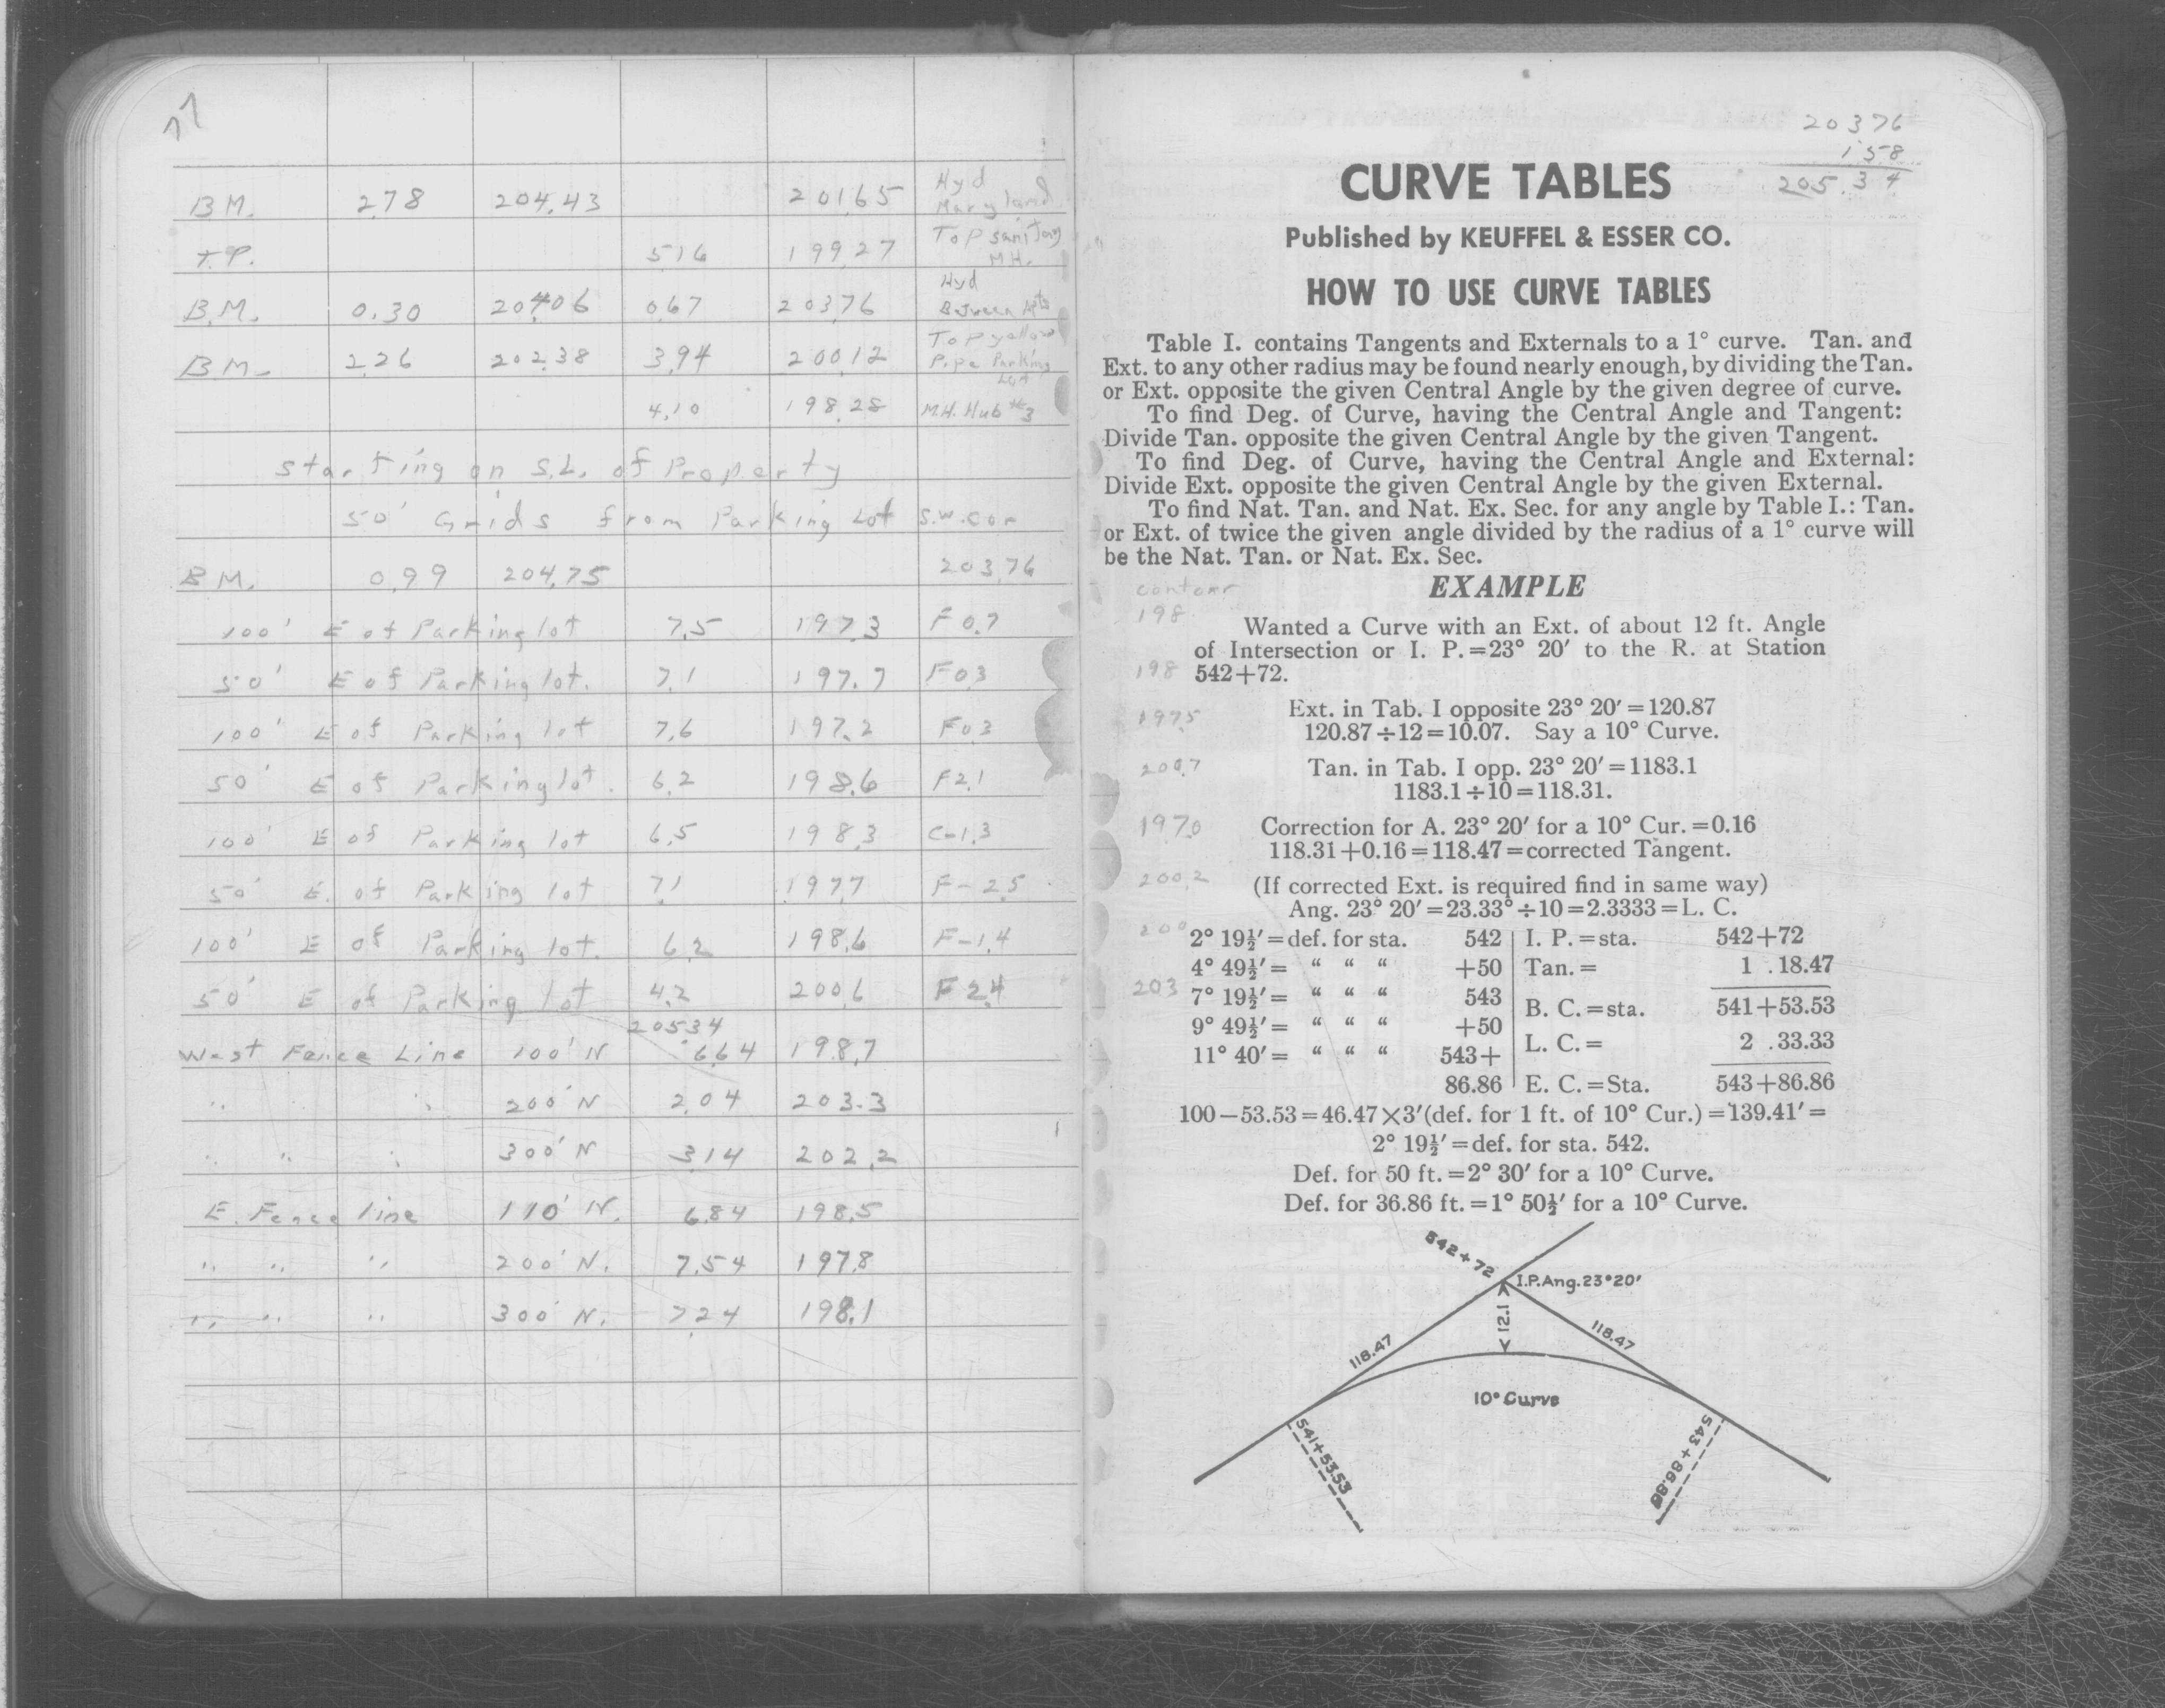 77
B.M. 2.78 204.43 201.65 Hyd Maryland
T.P. 5.16 199.27 Top sanitary M.H.
B.M. 0.30 204.06 0.67 203.76 Hyd Between Apts
B.M. 2.26 202.38 3.94 200.12 Top yellow Pipe Parking Lot
4.10 198.28 M.H. Hub #3
Starting on S.L. of Property
50' Grids from Parking Lot S.W. Cor
B.M. 0.99 204.75 203.76
100' E of Parking lot 7.5 197.3 F 0.7
50' E of Parking lot. 7.1 197.7 F 0.3
100' E of Parking lot 7.6 197.2 F 0.3
50' E of Parking lot. 6.2 198.6 F 2.1
100' E of Parking lot 6.5 198.3 C-1.3
50' E. of Parking lot 7.1 197.7 F-2.5
100' E of Parking lot. 6.2 198.6 F-1.4
50' E of Parking lot 4.2 200.6 F 2.4
205.34
West Fence Line 100' N 6.64 198.7
" " 200' N 2.04 203.3
" " " 300' N 3.14 202.2
E. Fence line 110' N. 6.84 198.5
" " " 200' N. 7.54 197.8
" " " 300' N. 7.24 198.1
203 76
1.58
205.34
CURVE TABLES
Published by KEUFFEL & ESSER CO.
HOW TO USE CURVE TABLES
Table I. contains Tangents and Externals to a 1° curve. Tan. and
Ext. to any other radius may be found nearly enough, by dividing the Tan.
or Ext. opposite the given Central Angle by the given degree of curve.
To find Deg. of Curve, having the Central Angle and Tangent:
Divide Tan. opposite the given Central Angle by the given Tangent.
To find Deg. of Curve, having the Central Angle and External:
Divide Ext. opposite the given Central Angle by the given External.
To find Nat. Tan. and Nat. Ex. Sec. for any angle by Table I.: Tan.
or Ext. of twice the given angle divided by the radius of a 1° curve will
be the Nat. Tan. or Nat. Ex. Sec.
EXAMPLE
contour
198
Wanted a Curve with an Ext. of about 12 ft. Angle
of Intersection or I. P.=23° 20′ to the R. at Station
198 542+72.
197.5 Ext. in Tab. I opposite 23° 20′=120.87
120.87÷12=10.07. Say a 10° Curve.
200.7 Tan. in Tab. I opp. 23° 20′=1183.1
1183.1÷10=118.31.
197.0 Correction for A. 23° 20′ for a 10° Cur.=0.16
118.31+0.16=118.47=corrected Tangent.
200.2 (If corrected Ext. is required find in same way)
Ang. 23° 20′=23.33°÷10=2.3333=L. C.
200 2° 19½′=def. for sta. 542 I. P.=sta. 542+72
4° 49½′= " " " +50 Tan.= 1 .18.47
203 7° 19½′= " " " 543 B. C.=sta. 541+53.53
9° 49½′= " " " +50 L. C.= 2 .33.33
11° 40′= " " " 543+
86.86 E. C.=Sta. 543+86.86
100−53.53=46.47×3′(def. for 1 ft. of 10° Cur.)=139.41′=
2° 19½′=def. for sta. 542.
Def. for 50 ft.=2° 30′ for a 10° Curve.
Def. for 36.86 ft.=1° 50½′ for a 10° Curve.
542+72
I.P.Ang.23°20′
12.1
118.47
118.47
10° Curve
541+53.53
543+86.86